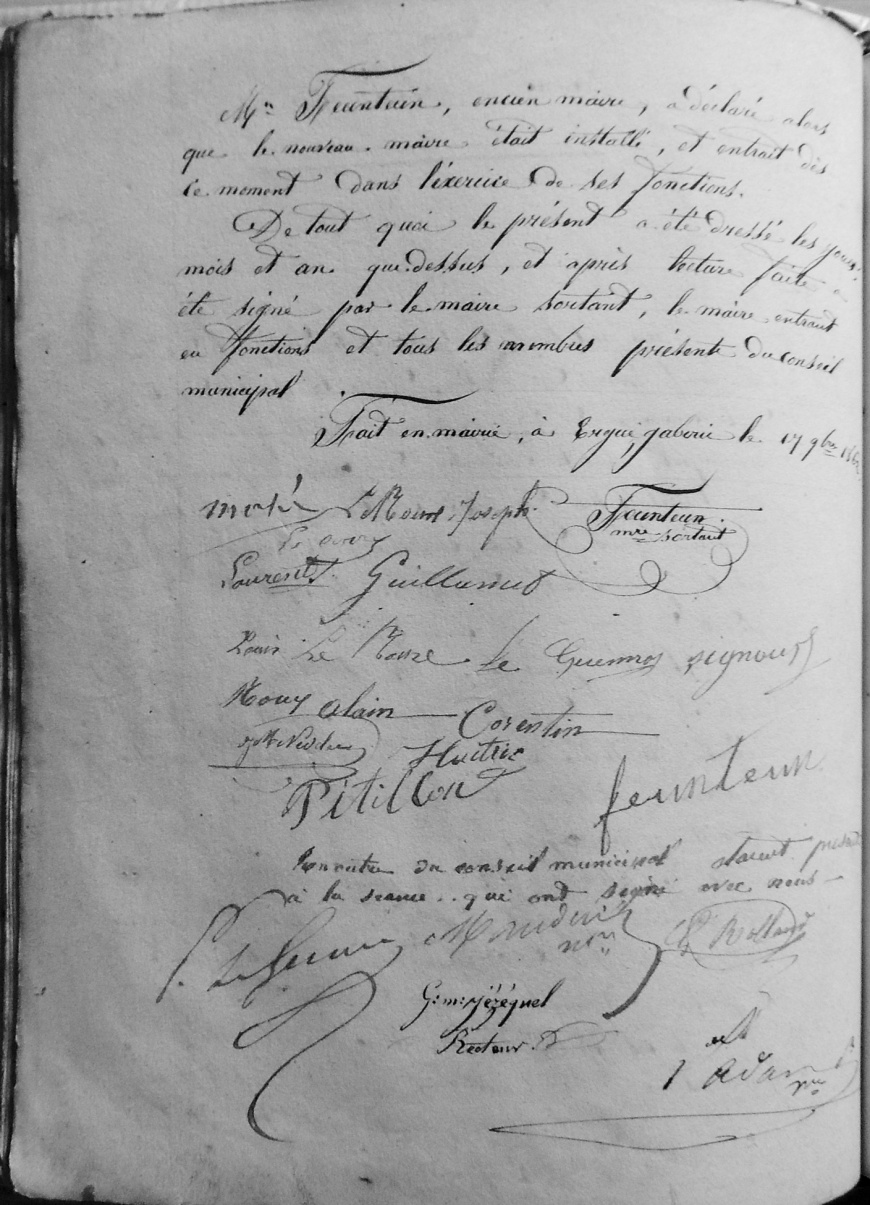 Mr Feunteun, encien maire, a déclaré alors
que le nouveau maire était installé, et entrait dès
ce moment dans l'éxercice de ses fonctions.
De tout quoi le présent a été dressé les jour,
mois et an que dessus, et après lecture faite a
été signé par le maire sortant, le maire entrant
en fonctions et tous les membres présents du conseil
municipal.
Fait en mairie, à Ergué gabéric le 17 9bre
Joseph Feunteun
mre sortant
Laurent Guillamet
Louis Le Roux Le Guennou
Rouy Alain Corentin
Huitric
Pétillon feunteun
du conseil municipal étaient
à la séance qui ont signé avec nous
Rolland
G. m. Jézéquel
Recteur
Adam